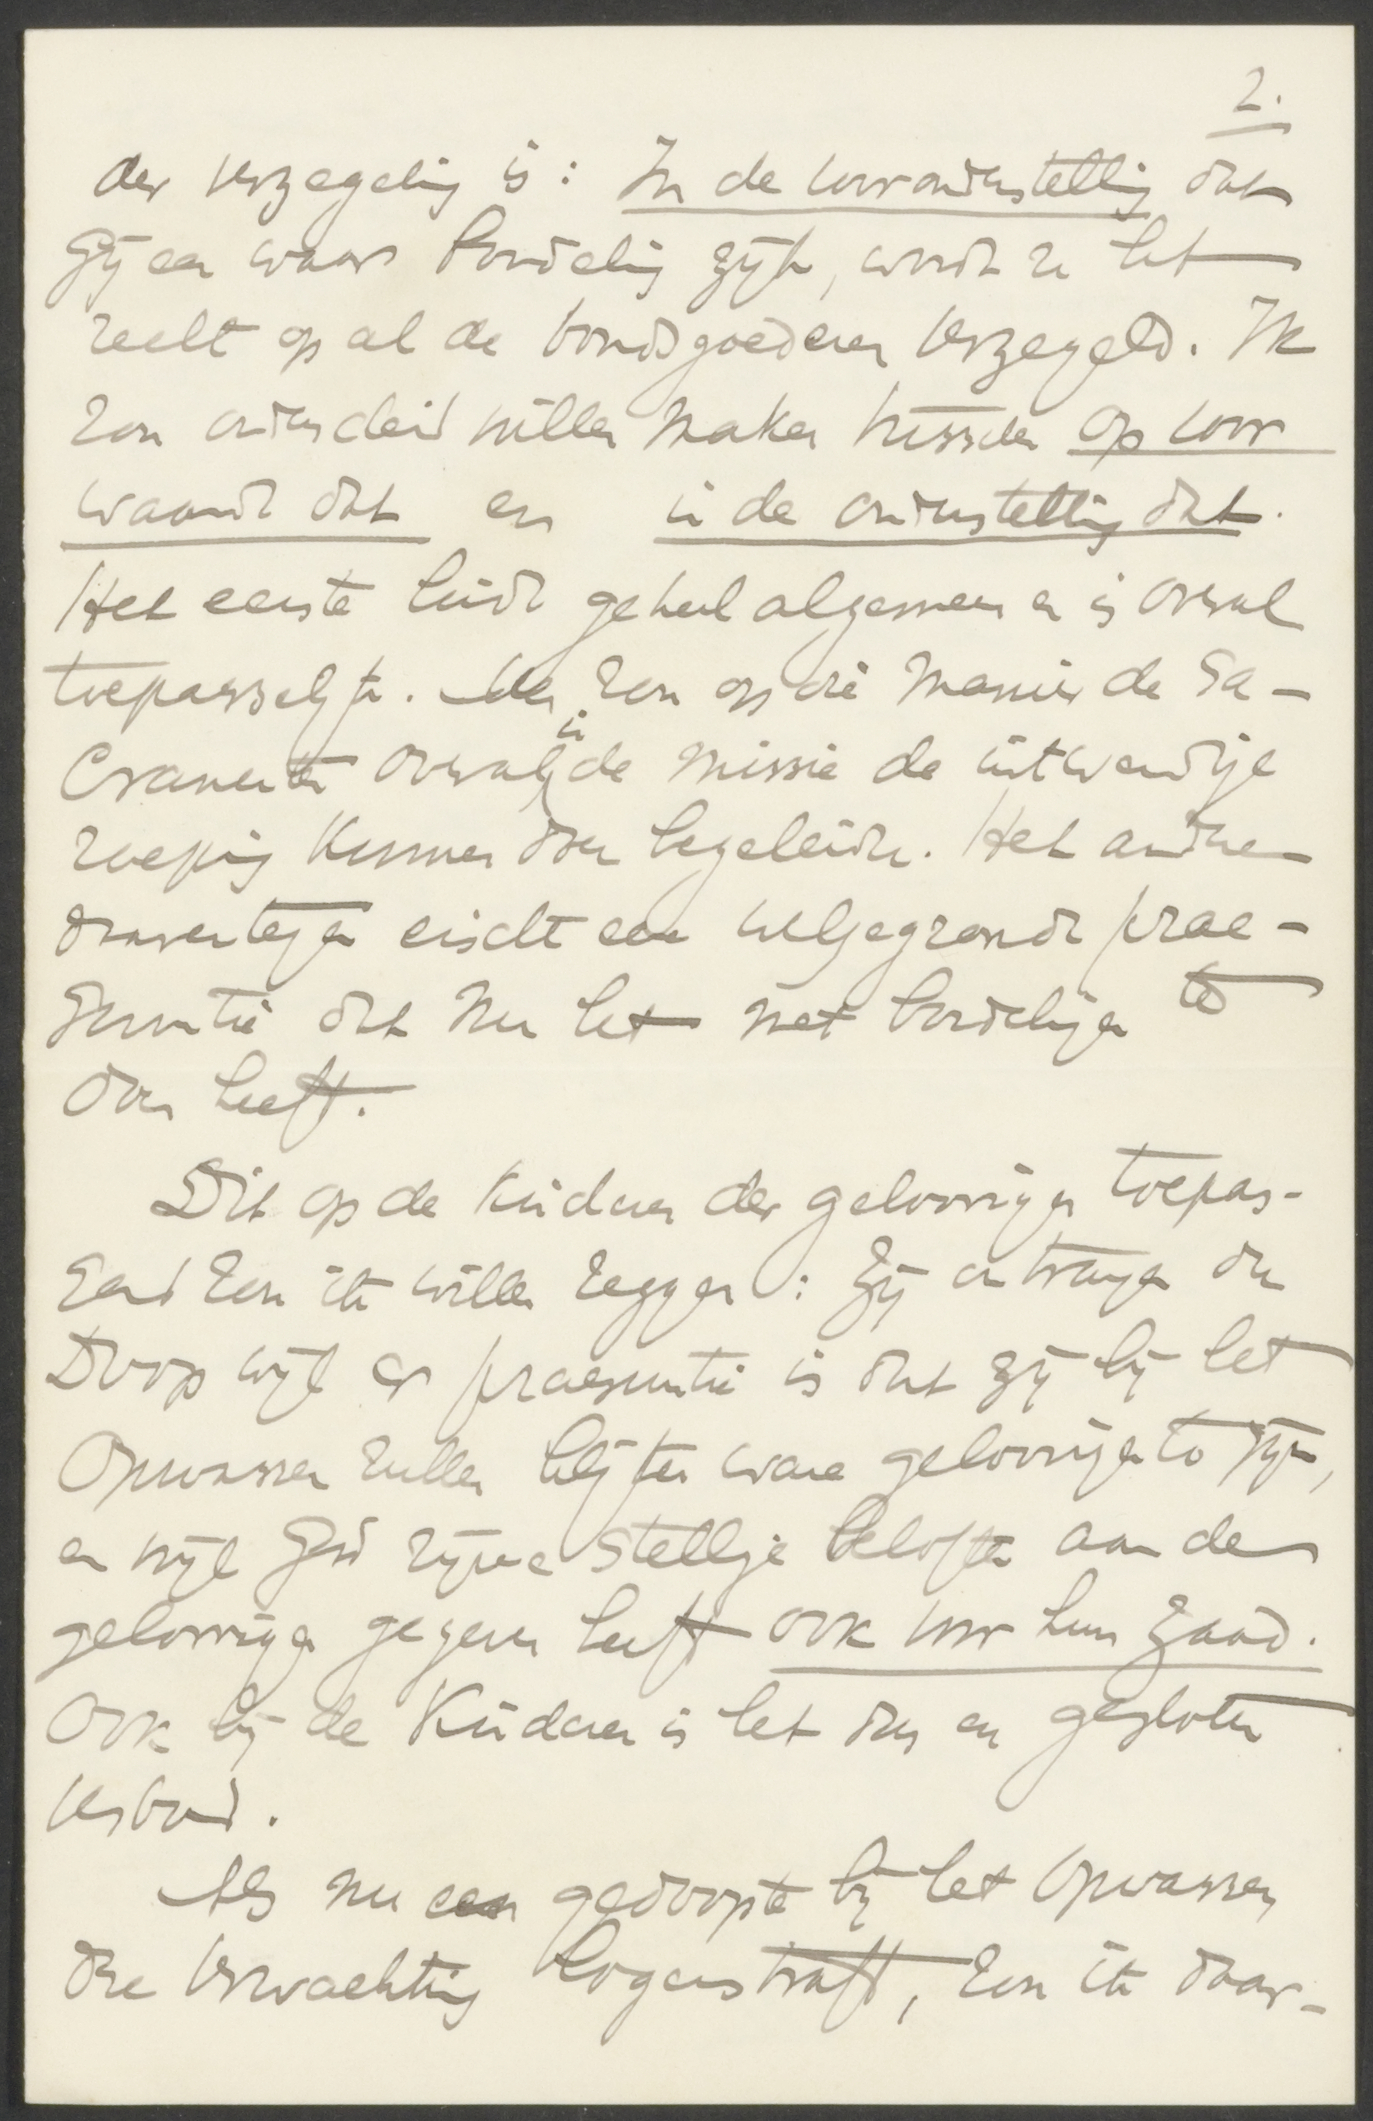 2.
der verzegeling is: In de vooronderstelling dat
gij een waar bondeling zijt, wordt u het
recht op al de bondsgoederen verzegeld. Ik
zou onderscheid willen maken tusschen op voor
waarde dat en in de onderstelling dat.
Het eerste luidt geheel algemeen en is overal
toepasselijk. Men zou op die manier de Sa-
cramenten overal in de missie de uitwendige
roeping kunnen doen begeleiden. Het andere
daarentegen eischt een welgegronde prae-
sumtie dat men het met bondelingen te
doen heeft.
Dit op de kinderen der geloovigen toepas-
send zou ik willen zeggen: Zij ontvangen den
Doop wijl er praesumtie is dat zij bij het
opwassen zullen blijken ware geloovigen te zijn,
en wijl God zijne stellige belofte aan de
geloovigen gegeven heeft ook voor hun zaad.
Ook bij de kinderen is het dus een gesloten
verbond.
Als nu een gedoopte bij het opwassen
die verwachting logenstraft, zou ik daar-